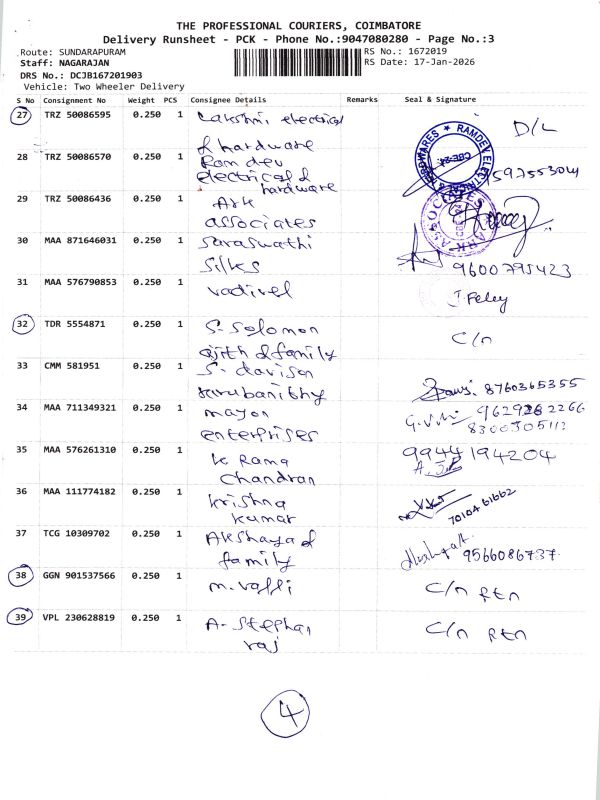 THE PROFESSIONAL COURIERS, COIMBATORE
Delivery Runsheet - PCK - Phone No.:9047080280 - Page No.:3
Route: SUNDARAPURAM
RS No.: 1672019
Staff: NAGARAJAN
RS Date: 17-Jan-2026
DRS No.: DCJB167201903
Vehicle: Two Wheeler Delivery
S No Consignment No Weight PCS Consignee Details Remarks Seal & Signature
27 TRZ 50086595 0.250 1 Lakshmi electrical
& hardware
D/L
28 TRZ 50086570 0.250 1 Ram dev
electrical &
hardware
29 TRZ 50086436 0.250 1 Ark
associates
30 MAA 871646031 0.250 1 Saraswathi
Silks
9600795423
31 MAA 576790853 0.250 1 vadivel
J. Feley
32 TDR 5554871 0.250 1 S. Solomon
ajith & family
C/n
33 CMM 581951 0.250 1 S. davison
kirubanithy
8760365355
34 MAA 711349321 0.250 1 mayon
enterprises
8300305112
35 MAA 576261310 0.250 1 K Rama
Chandran
9944194204
36 MAA 111774182 0.250 1 Krishna
Kumar
7010461662
37 TCG 10309702 0.250 1 Akshaya &
family
9566086737
38 GGN 901537566 0.250 1 m. valli
C/n Rtn
39 VPL 230628819 0.250 1 A. Stephan
raj
C/n Rtn
4